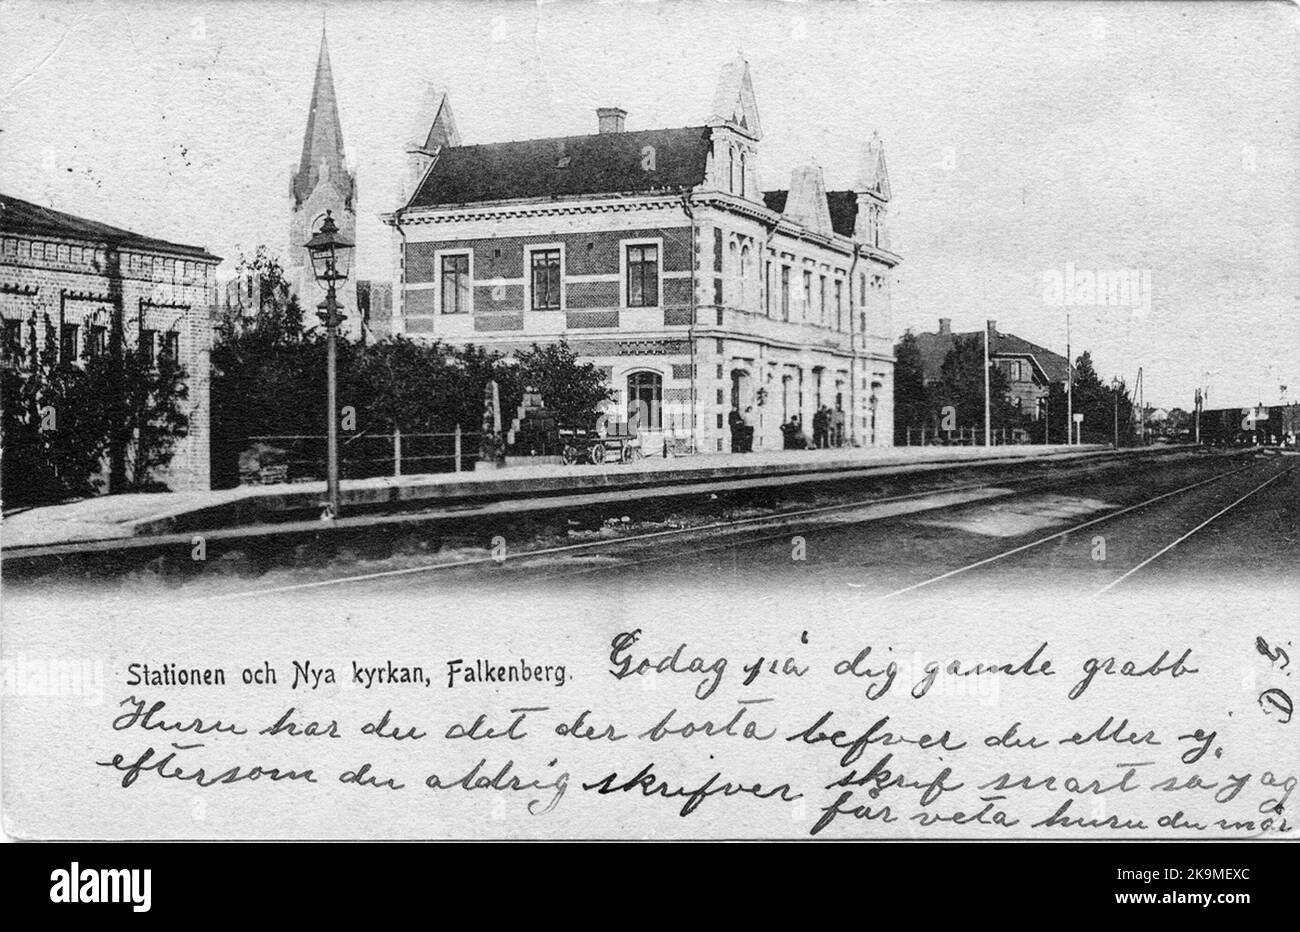 Stationen och Nya kyrkan, Falkenberg.
Godag på dig gamle grabb
Huru har du det der borta lefver du eller ej,
eftersom du aldrig skrifver skrif snart så jag
får veta huru du mår
D. G.
alamy
Image ID: K9MEXC
www.alamy.com